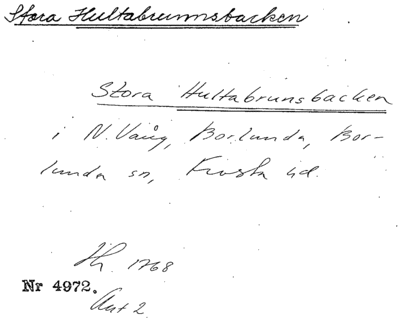 Stora Hultabrunnsbacken
Stora Hultabrunsbacken
i N. Vång, Borlunda, Bor-
lunda sn, Frosta hd.
1768
Nr 4972.
Akt 2